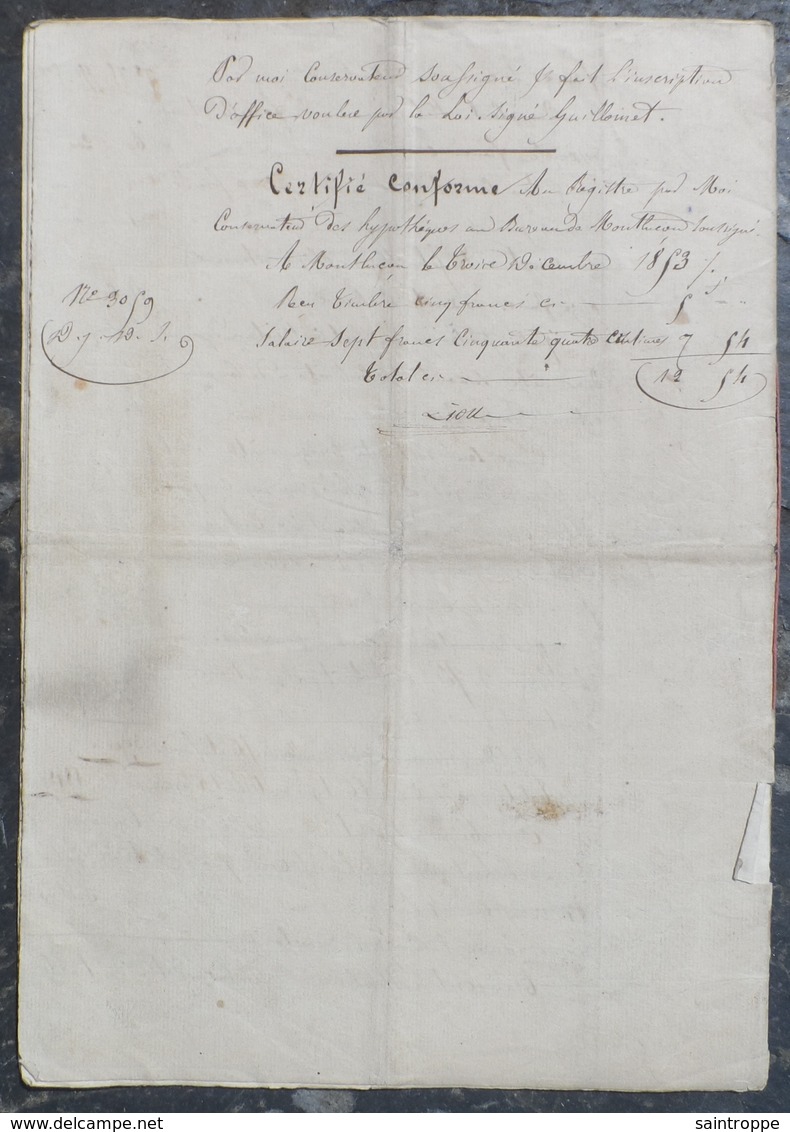 Par moi Conservateur Soussigné & fait l'inscription
D'office voulue par la Loi signé Guillomet.
Certifié conforme Au Régistre par Moi
Conservateur des hypothèques au Bureau de Montlucon Soussigné.
A Montlucon le treize Décembre 1853 /.
Reçu Timbre cinq francs ci 5 " "
Salaire Sept francs Cinquante quatre centimes 7 54
Total ci 12 54
No 3059
saintroppe